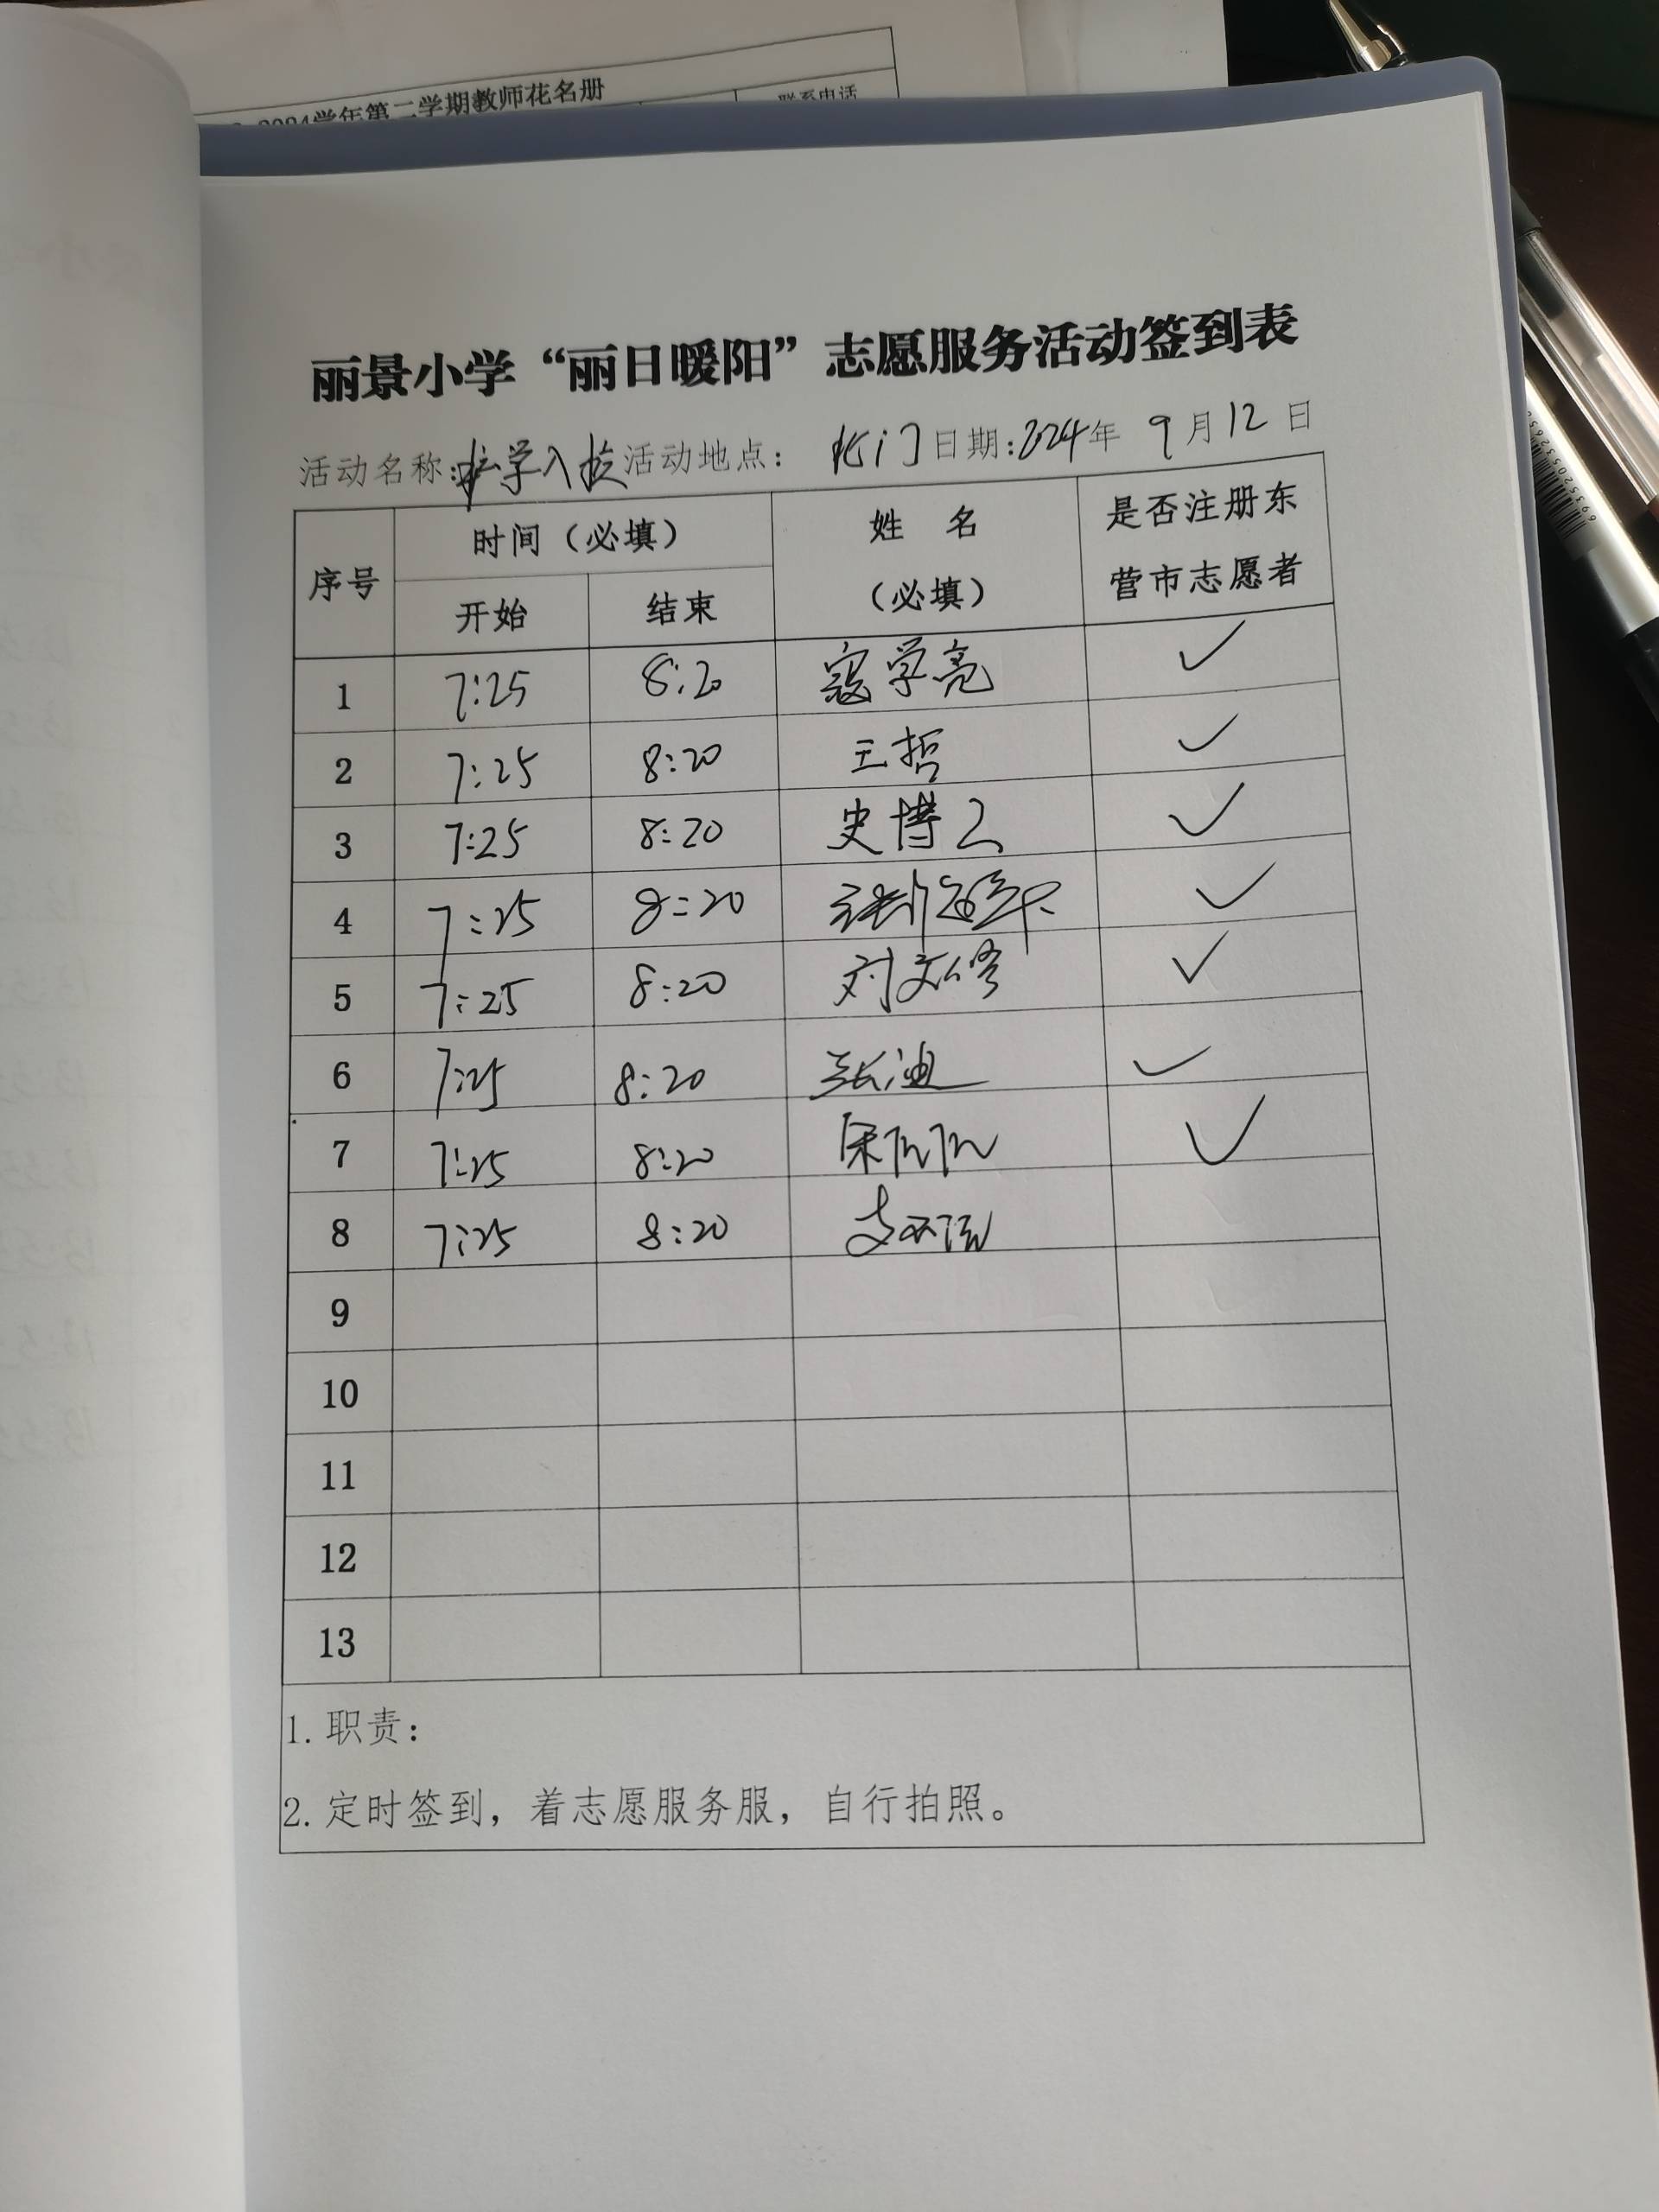 2024学年第二学期教师花名册
联系电话
丽景小学“丽日暖阳”志愿服务活动签到表
活动名称:护学入校 活动地点: 北门 日期:2024年 9月12日
序号 时间（必填） 姓 名 是否注册东
开始 结束 （必填） 营市志愿者
1 7:25 8:20 寇学亮 ✓
2 7:25 8:20 王哲 ✓
3 7:25 8:20 史博 ✓
4 7:25 8:20 ✓
5 7:25 8:20 刘文修 ✓
6 7:25 8:20 张迪 ✓
7 7:25 8:20 ✓
8 7:25 8:20
9
10
11
12
13
1.职责：
2.定时签到，着志愿服务服，自行拍照。